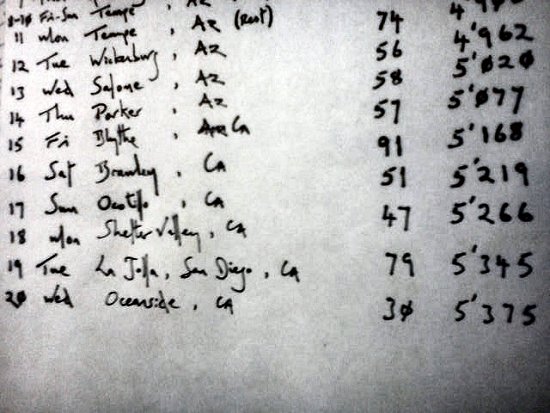 8-10 Fri-Sun Tempe, AZ (Rest)
11 Mon Tempe, AZ
12 Tue Wickenburg, AZ 74
13 Wed Salome, AZ 56 4'962
14 Thu Parker, AZ 58 5'020
15 Fri Blythe, CA 57 5'077
16 Sat Brawley, CA 91 5'168
17 Sun Ocotillo, CA 51 5'219
18 Mon Shelter Valley, CA 47 5'266
19 Tue La Jolla, San Diego, CA 79 5'345
20 Wed Oceanside, CA 30 5'375